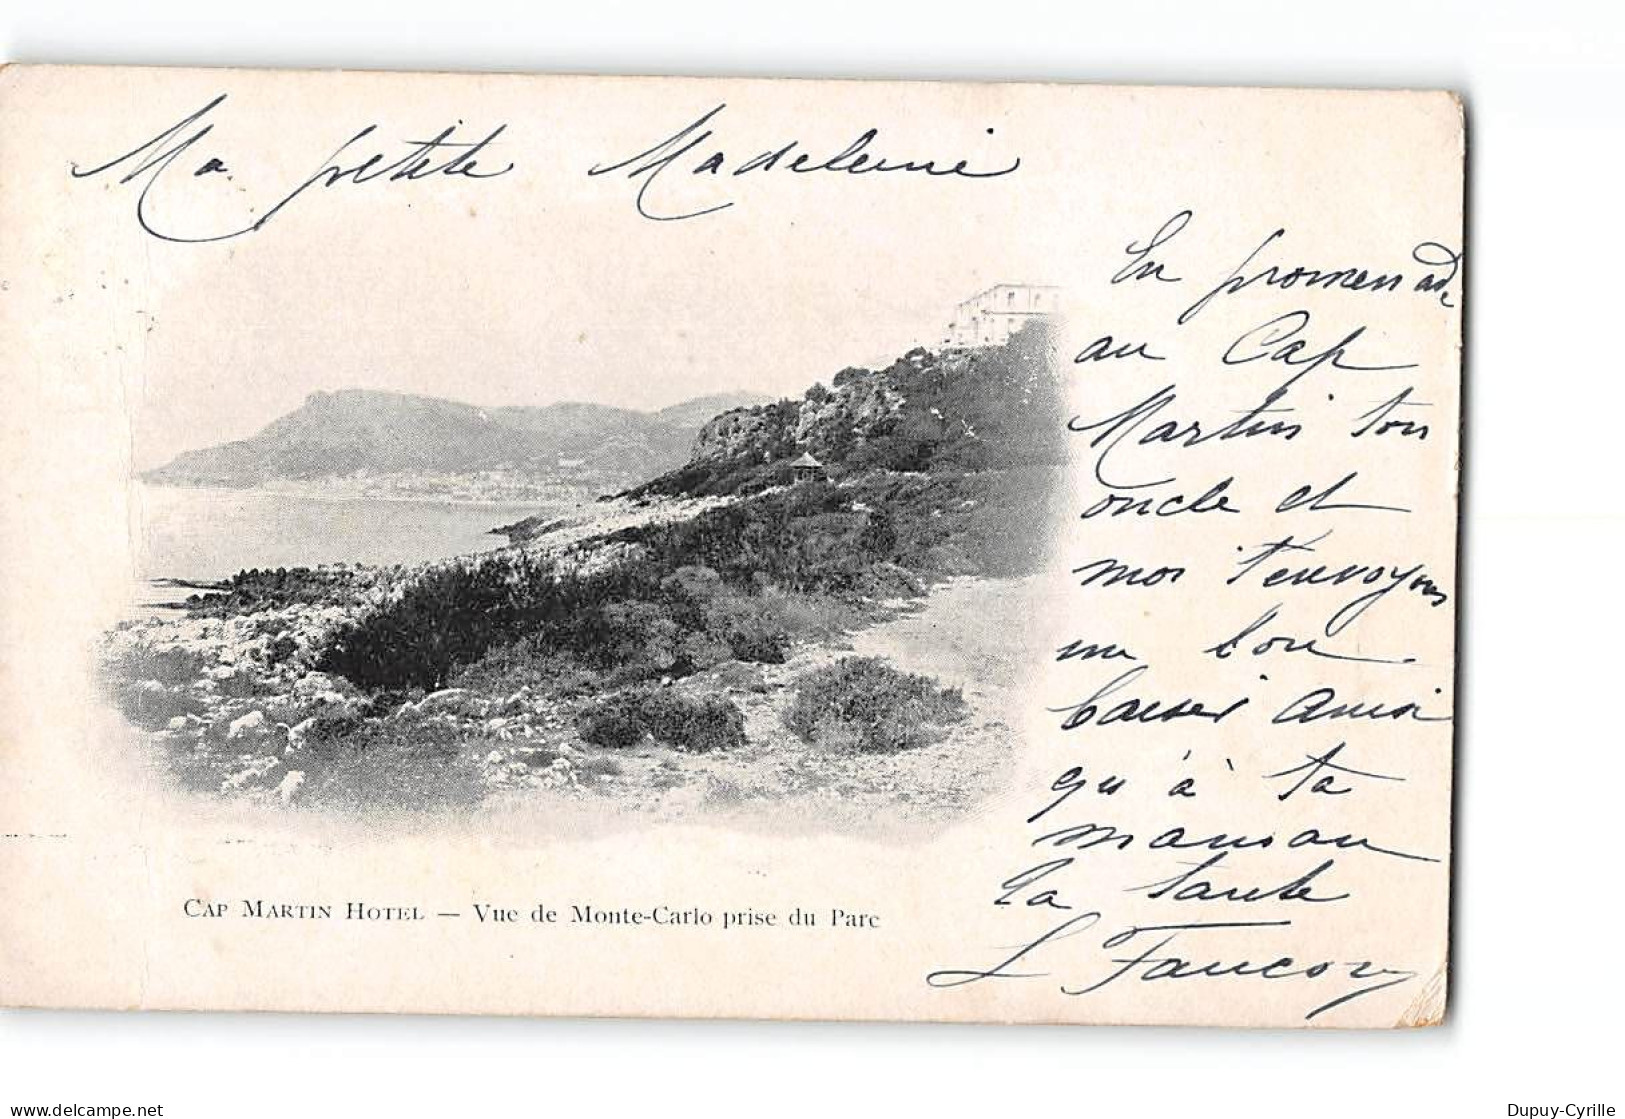 Ma petite Madeleine
En promenade
au Cap
Martin ton
oncle et
moi t'envoyons
un bon
baiser ainsi
qu'à ta
maman
La tante
L Faucon
CAP MARTIN HOTEL — Vue de Monte-Carlo prise du Parc
delcampe.net
Dupuy-Cyrille